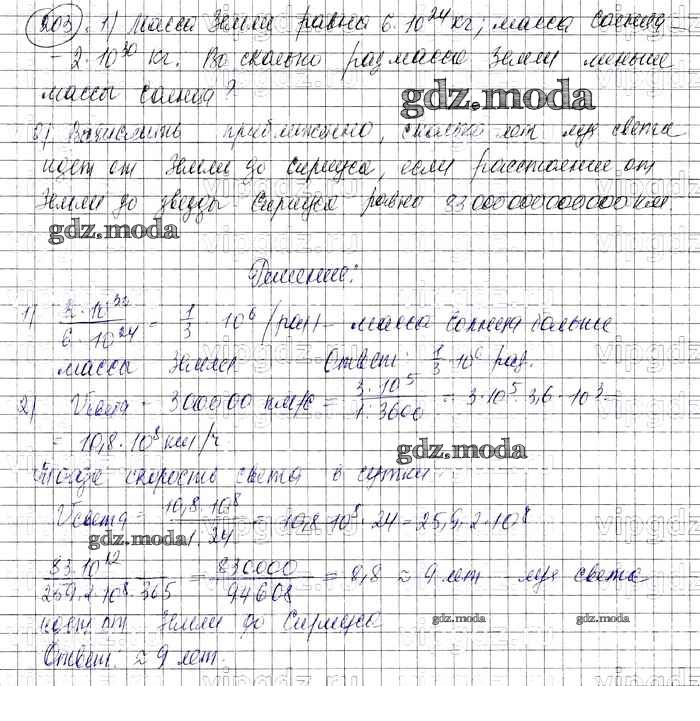 203. 1) Масса Земли равна 6·10²⁴ кг; масса солнца
- 2·10³⁰ кг. Во сколько раз масса Земли меньше
массы солнца?
gdz.moda
2) Вычислить приближенно, сколько лет луч света
идет от Земли до Сириуса, если расстояние от
Земли до звезды Сириуса равно 83000000000000 км
gdz.moda
Решение:
1) 2·10³⁰ / 6·10²⁴ = 1/3 · 10⁶ (раз) – масса солнца больше
массы Земли Ответ: 1/3·10⁶ раз.
2) Vсвета = 300000 км/с = 3·10⁵ / 1:3600 = 3·10⁵·3,6·10³ =
= 10,8·10⁸ км/ч
gdz.moda
скорость света в сутки
Vсвета = 10,8·10⁸ / 1:24 = 10,8·10⁸·24 = 259,2·10⁸
gdz.moda
83·10¹² / 259,2·10⁸·365 = 830000 / 94608 = 8,8 ≈ 9 лет луч света
идет от Земли до Сириуса
gdz.moda
gdz.moda
Ответ: ≈ 9 лет.
vipgdz.ru